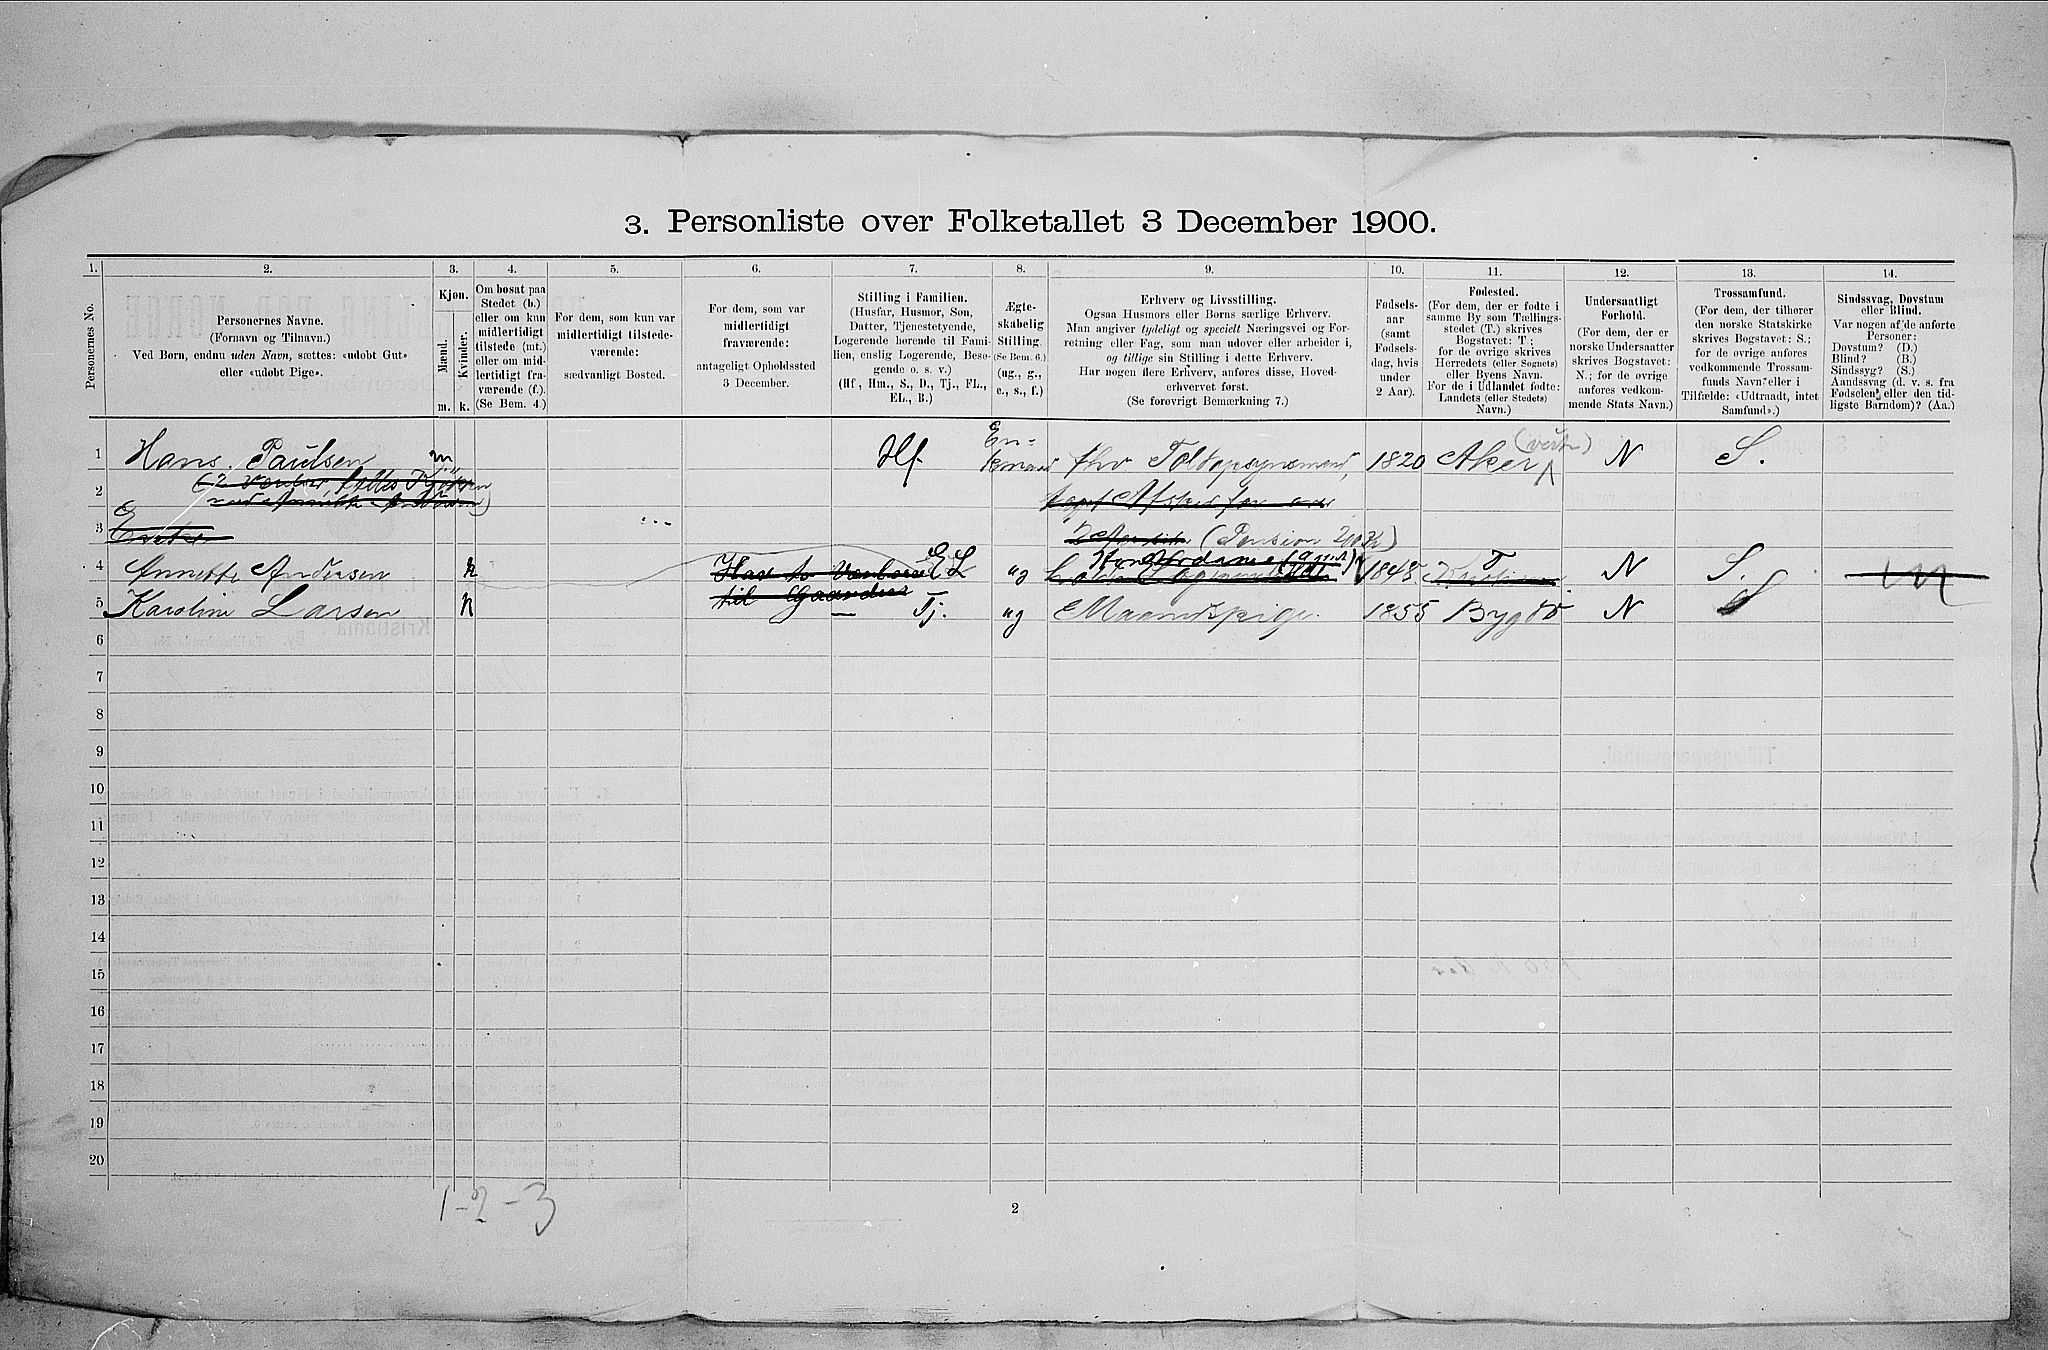 3. Personliste over Folketallet 3 December 1900.
1. 2. 3. 4. 5. 6. 7. 8. 9. 10. 11. 12. 13. 14.
Personernes No.
Personernes Navne.
(Fornavn og Tilnavn.)
Ved Børn, endnu uden Navn, sættes: «udøbt Gut»
eller «udøbt Pige».
Kjøn.
Mænd. Kvinder.
m. k.
Om bosat paa
Stedet (b.)
eller om kun
midlertidigt
tilstede (mt.)
eller om mid-
lertidigt fra-
værende (f.).
(Se Bem. 4.)
For dem, som kun var
midlertidigt tilstede-
værende:
sædvanligt Bosted.
For dem, som var
midlertidigt
fraværende:
antageligt Opholdssted
3 December.
Stilling i Familien.
(Husfar, Husmor, Søn,
Datter, Tjenestetyende,
Logerende hørende til Fami-
lien, enslig Logerende, Besø-
gende o. s. v.)
(Hf., Hm., S., D., Tj., FL.,
EL., B.)
Ægte-
skabelig
Stilling.
(Se Bem. 6.)
(ug., g.,
e., s., f.)
Erhverv og Livsstilling.
Ogsaa Husmors eller Børns særlige Erhverv.
Man angiver tydeligt og specielt Næringsvei og For-
retning eller Fag, som man udøver eller arbeider i,
og tillige sin Stilling i dette Erhverv.
Har nogen flere Erhverv, anføres disse, Hoved-
erhvervet først.
(Se forøvrigt Bemærkning 7.)
Fødsels-
aar
(samt
Fødsels-
dag, hvis
under
2 Aar).
Fødested.
(For dem, der er fødte i
samme By som Tællings-
stedet (T.) skrives
Bogstavet: T;
for de øvrige skrives
Herredets (eller Sognets)
eller Byens Navn.
For de i Udlandet fødte:
Landets (eller Stedets)
Navn.)
Undersaatligt
Forhold.
(For dem, der er
norske Undersaatter
skrives Bogstavet:
N.; for de øvrige
anføres vedkom-
mende Stats Navn.)
Trossamfund.
(For dem, der tilhører
den norske Statskirke
skrives Bogstavet: S.;
for de øvrige anføres
vedkommende Trossam-
funds Navn eller i
Tilfælde: «Udtraadt, intet
Samfund».)
Sindssvag, Døvstum
eller Blind.
Var nogen af de anførte
Personer:
Døvstum? (D.)
Blind? (B.)
Sindssyg? (S.)
Aandssvag (d. v. s. fra
Fødselen eller den tid-
ligste Barndom)? (Aa.)
1 Hans Paulsen m Hf. En-kmand fhv Toldopsynsmand, 1820 Aker (vestr) N S.
2
3 (Pension
4 Annette Andersen k EL ug 1845 T N S.
5 Karoline Larsen k — Tj. ug Maanedspige. 1855 Bygdø N S
6
7
8
9
10
11
12
13
14
15
16
17
18
19
20
1-2-3
2